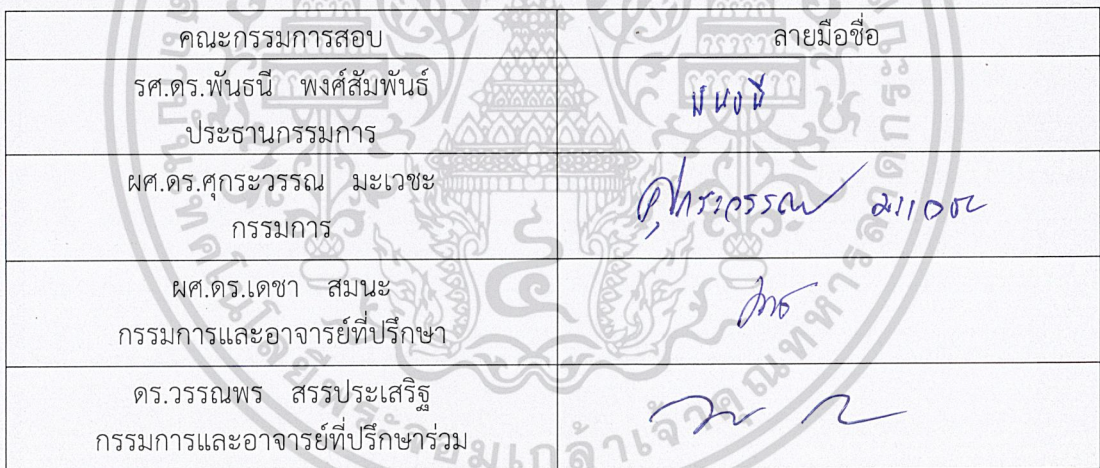 คณะกรรมการสอบ ลายมือชื่อ
รศ.ดร.พันธนี พงศ์สัมพันธ์
ประธานกรรมการ
ผศ.ดร.ศุกระวรรณ มะเวชะ
ศุกระวรรณ มะเวชะ
กรรมการ
ผศ.ดร.เดชา สมนะ
กรรมการและอาจารย์ที่ปรึกษา
ดร.วรรณพร สรรประเสริฐ
กรรมการและอาจารย์ที่ปรึกษาร่วม